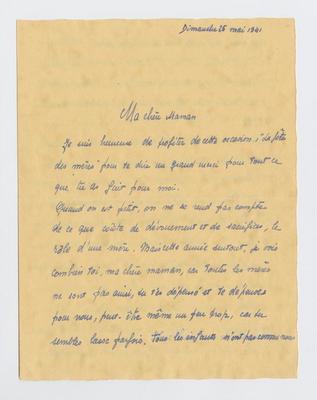 Dimanche 25 mai 1941
Ma chère Maman
Je suis heureuse de profiter de cette occasion, "la fête
des mères" pour te dire un grand merci pour tout ce
que tu as fait pour moi.
Quand on est petit, on ne se rend pas compte
de ce que coûte de dévouement et de sacrifices, le
rôle d'une mère. Mais cette année surtout, je vois
combien toi, ma chère maman, car toutes les mères
ne sont pas ainsi, tu t'es dépensé et te dépenses
pour nous, peut-être même un peu trop, car tu
sembles lasse parfois. Tous les enfants n'ont pas comme nous